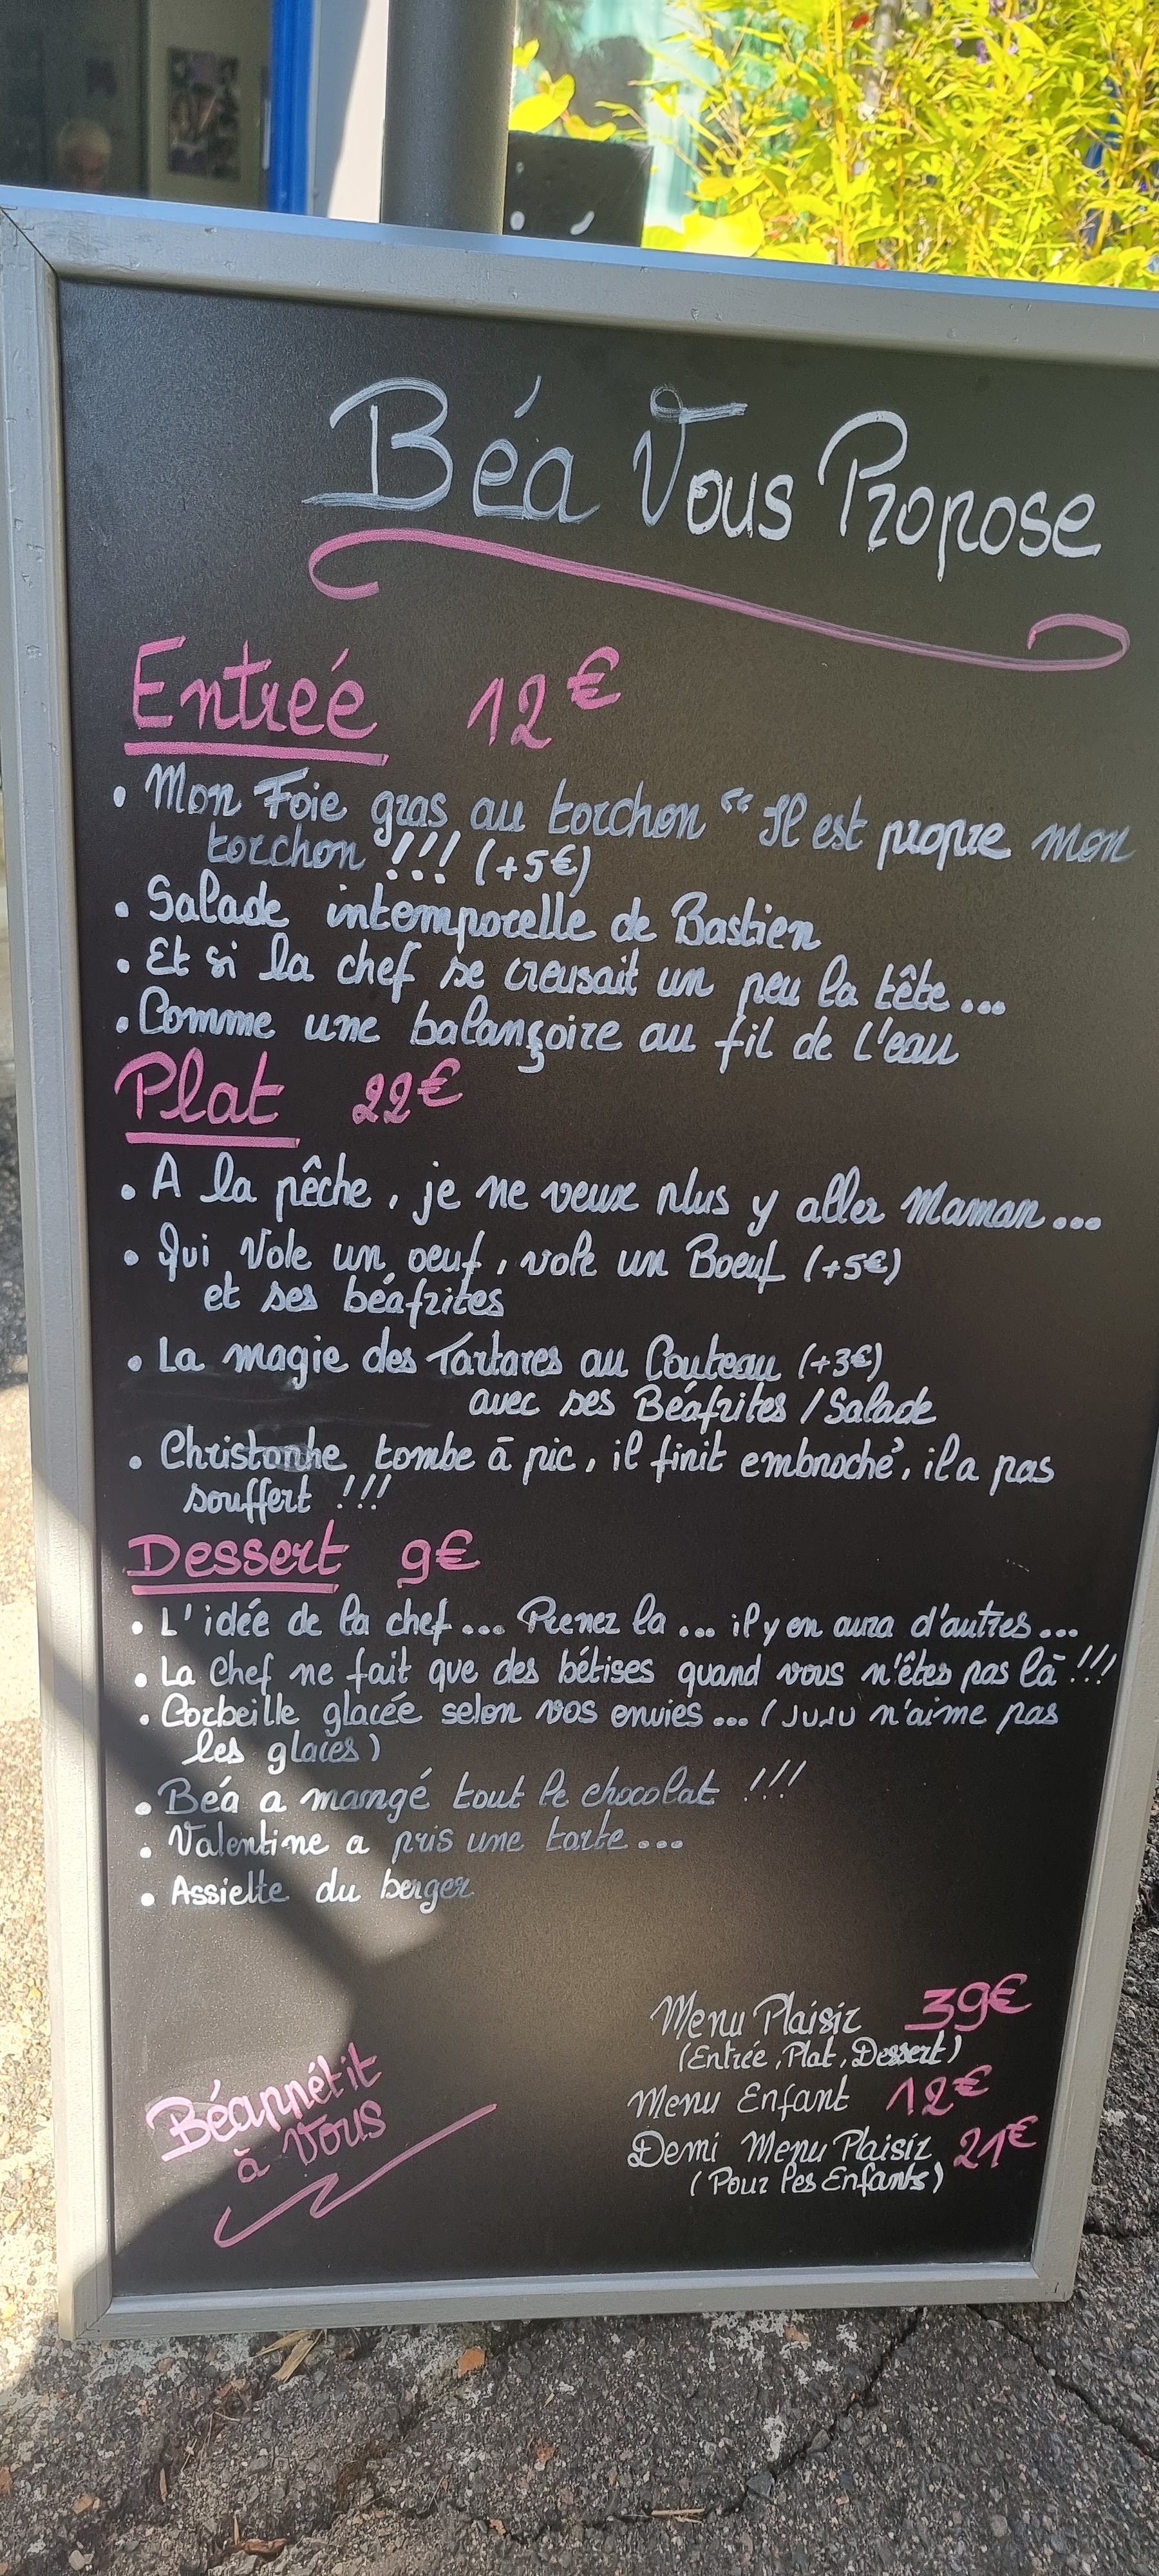 Béa Vous Propose
Entrée 12€
• Mon Foie gras au torchon " Il est propre mon
torchon !!! (+5€)
• Salade intemporelle de Bastien
• Et si la chef se creusait un peu la tête...
• Comme une balançoire au fil de l'eau
Plat 22€
• A la pêche, je ne veux plus y aller Maman...
• Qui Vole un oeuf, vole un Boeuf (+5€)
et ses béafrites
• La magie des Tartares au Couteau (+3€)
avec ses Béafrites / Salade
• Christophe tombe à pic, il finit embroché, il a pas
souffert !!!
Dessert 9€
• L'idée de la chef... Prenez la... il y en aura d'autres...
• La Chef ne fait que des bétises quand vous n'êtes pas là !!!
• Corbeille glacée selon vos envies... (JUJU n'aime pas
les glaces)
• Béa a mangé tout le chocolat !!!
• Valentine a pris une tarte...
• Assiette du berger
Menu Plaisir 39€
(Entrée, Plat, Dessert)
Menu Enfant 12€
Demi Menu Plaisir 21€
(Pour les Enfants)
Béappétit
à Vous